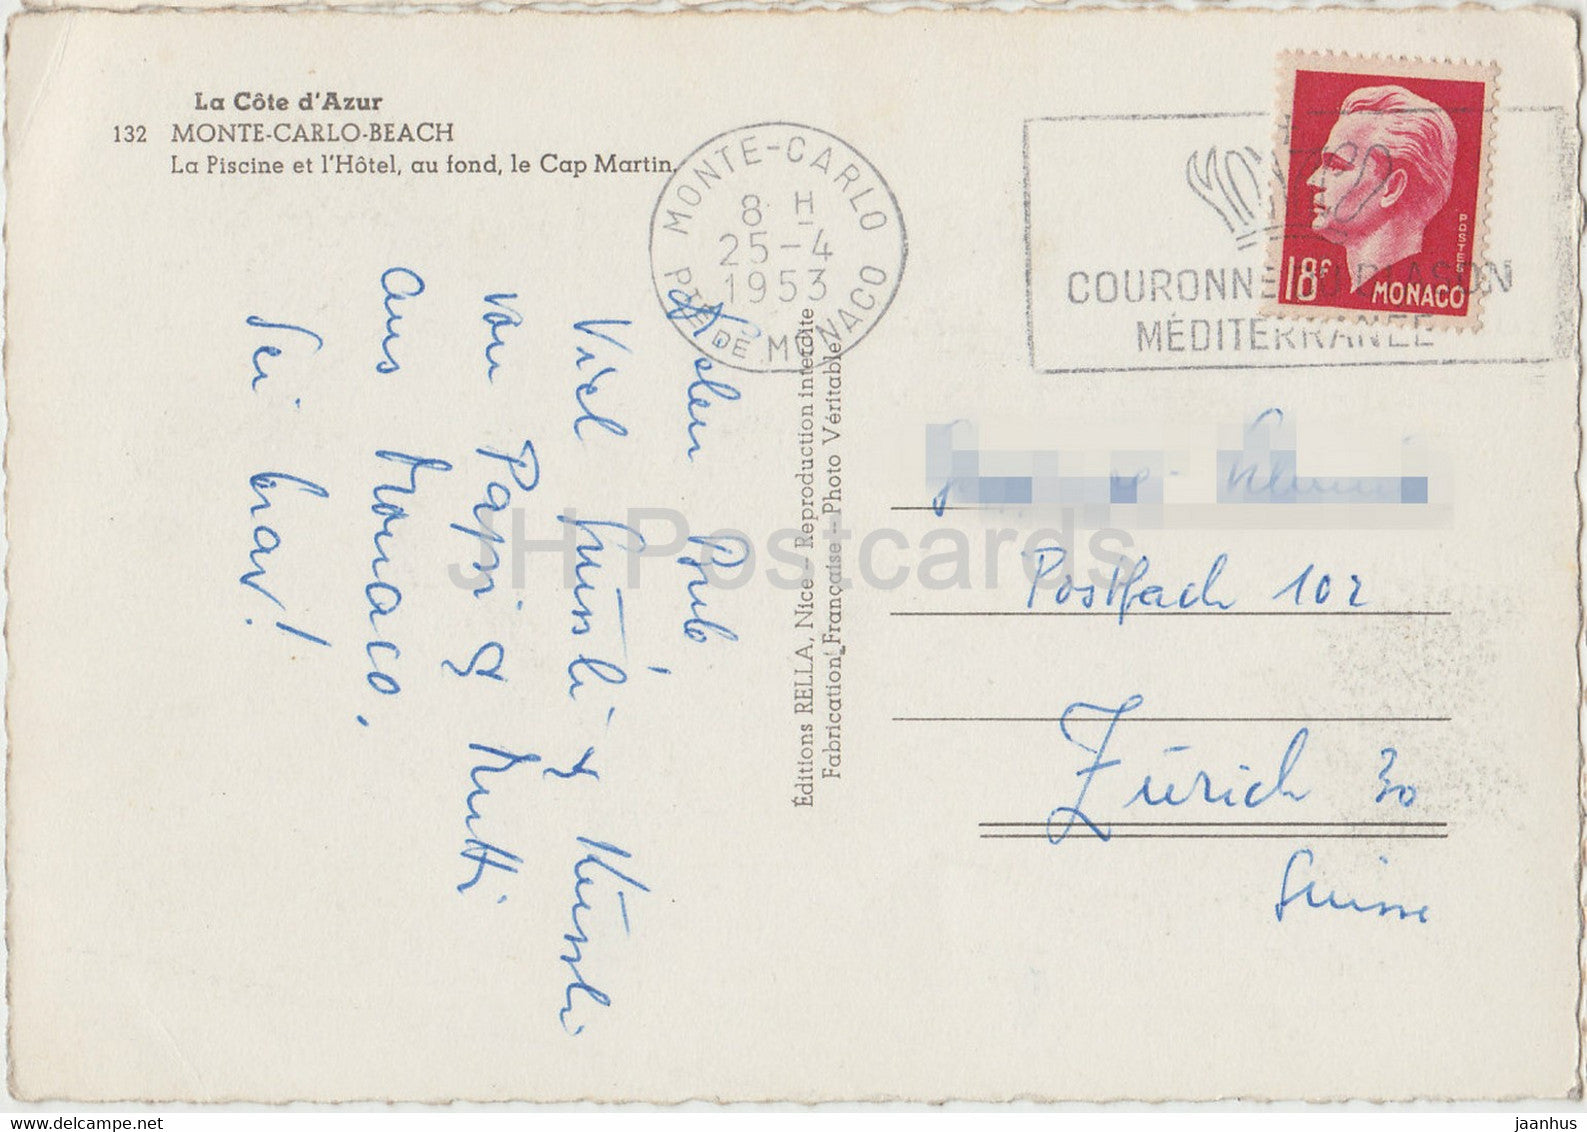 La Côte d'Azur
132 MONTE-CARLO-BEACH
La Piscine et l'Hôtel, au fond, le Cap Martin.
MONTE-CARLO
8 H
25-4
1953
PTE DE MONACO
COURONNE DU BLASON
MÉDITERRANÉE
POSTES
18F MONACO
Viel Grüssli & Küssli
von Papi & Mutti
aus Monaco.
Sei brav!
Éditions RELLA, Nice - Reproduction interdite
Fabrication Française - Photo Véritable
Postfach 102
Zürich 30
Suisse
JH Postcards
www.delcampe.net
jaanhus